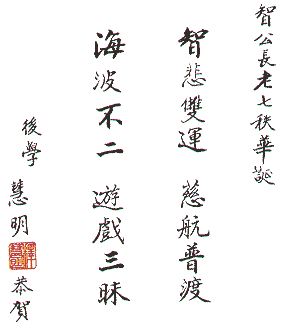 智公長老七秩華誕
智悲雙運 慈航普渡
海波不二 遊戲三昧
後學 慧明 恭賀